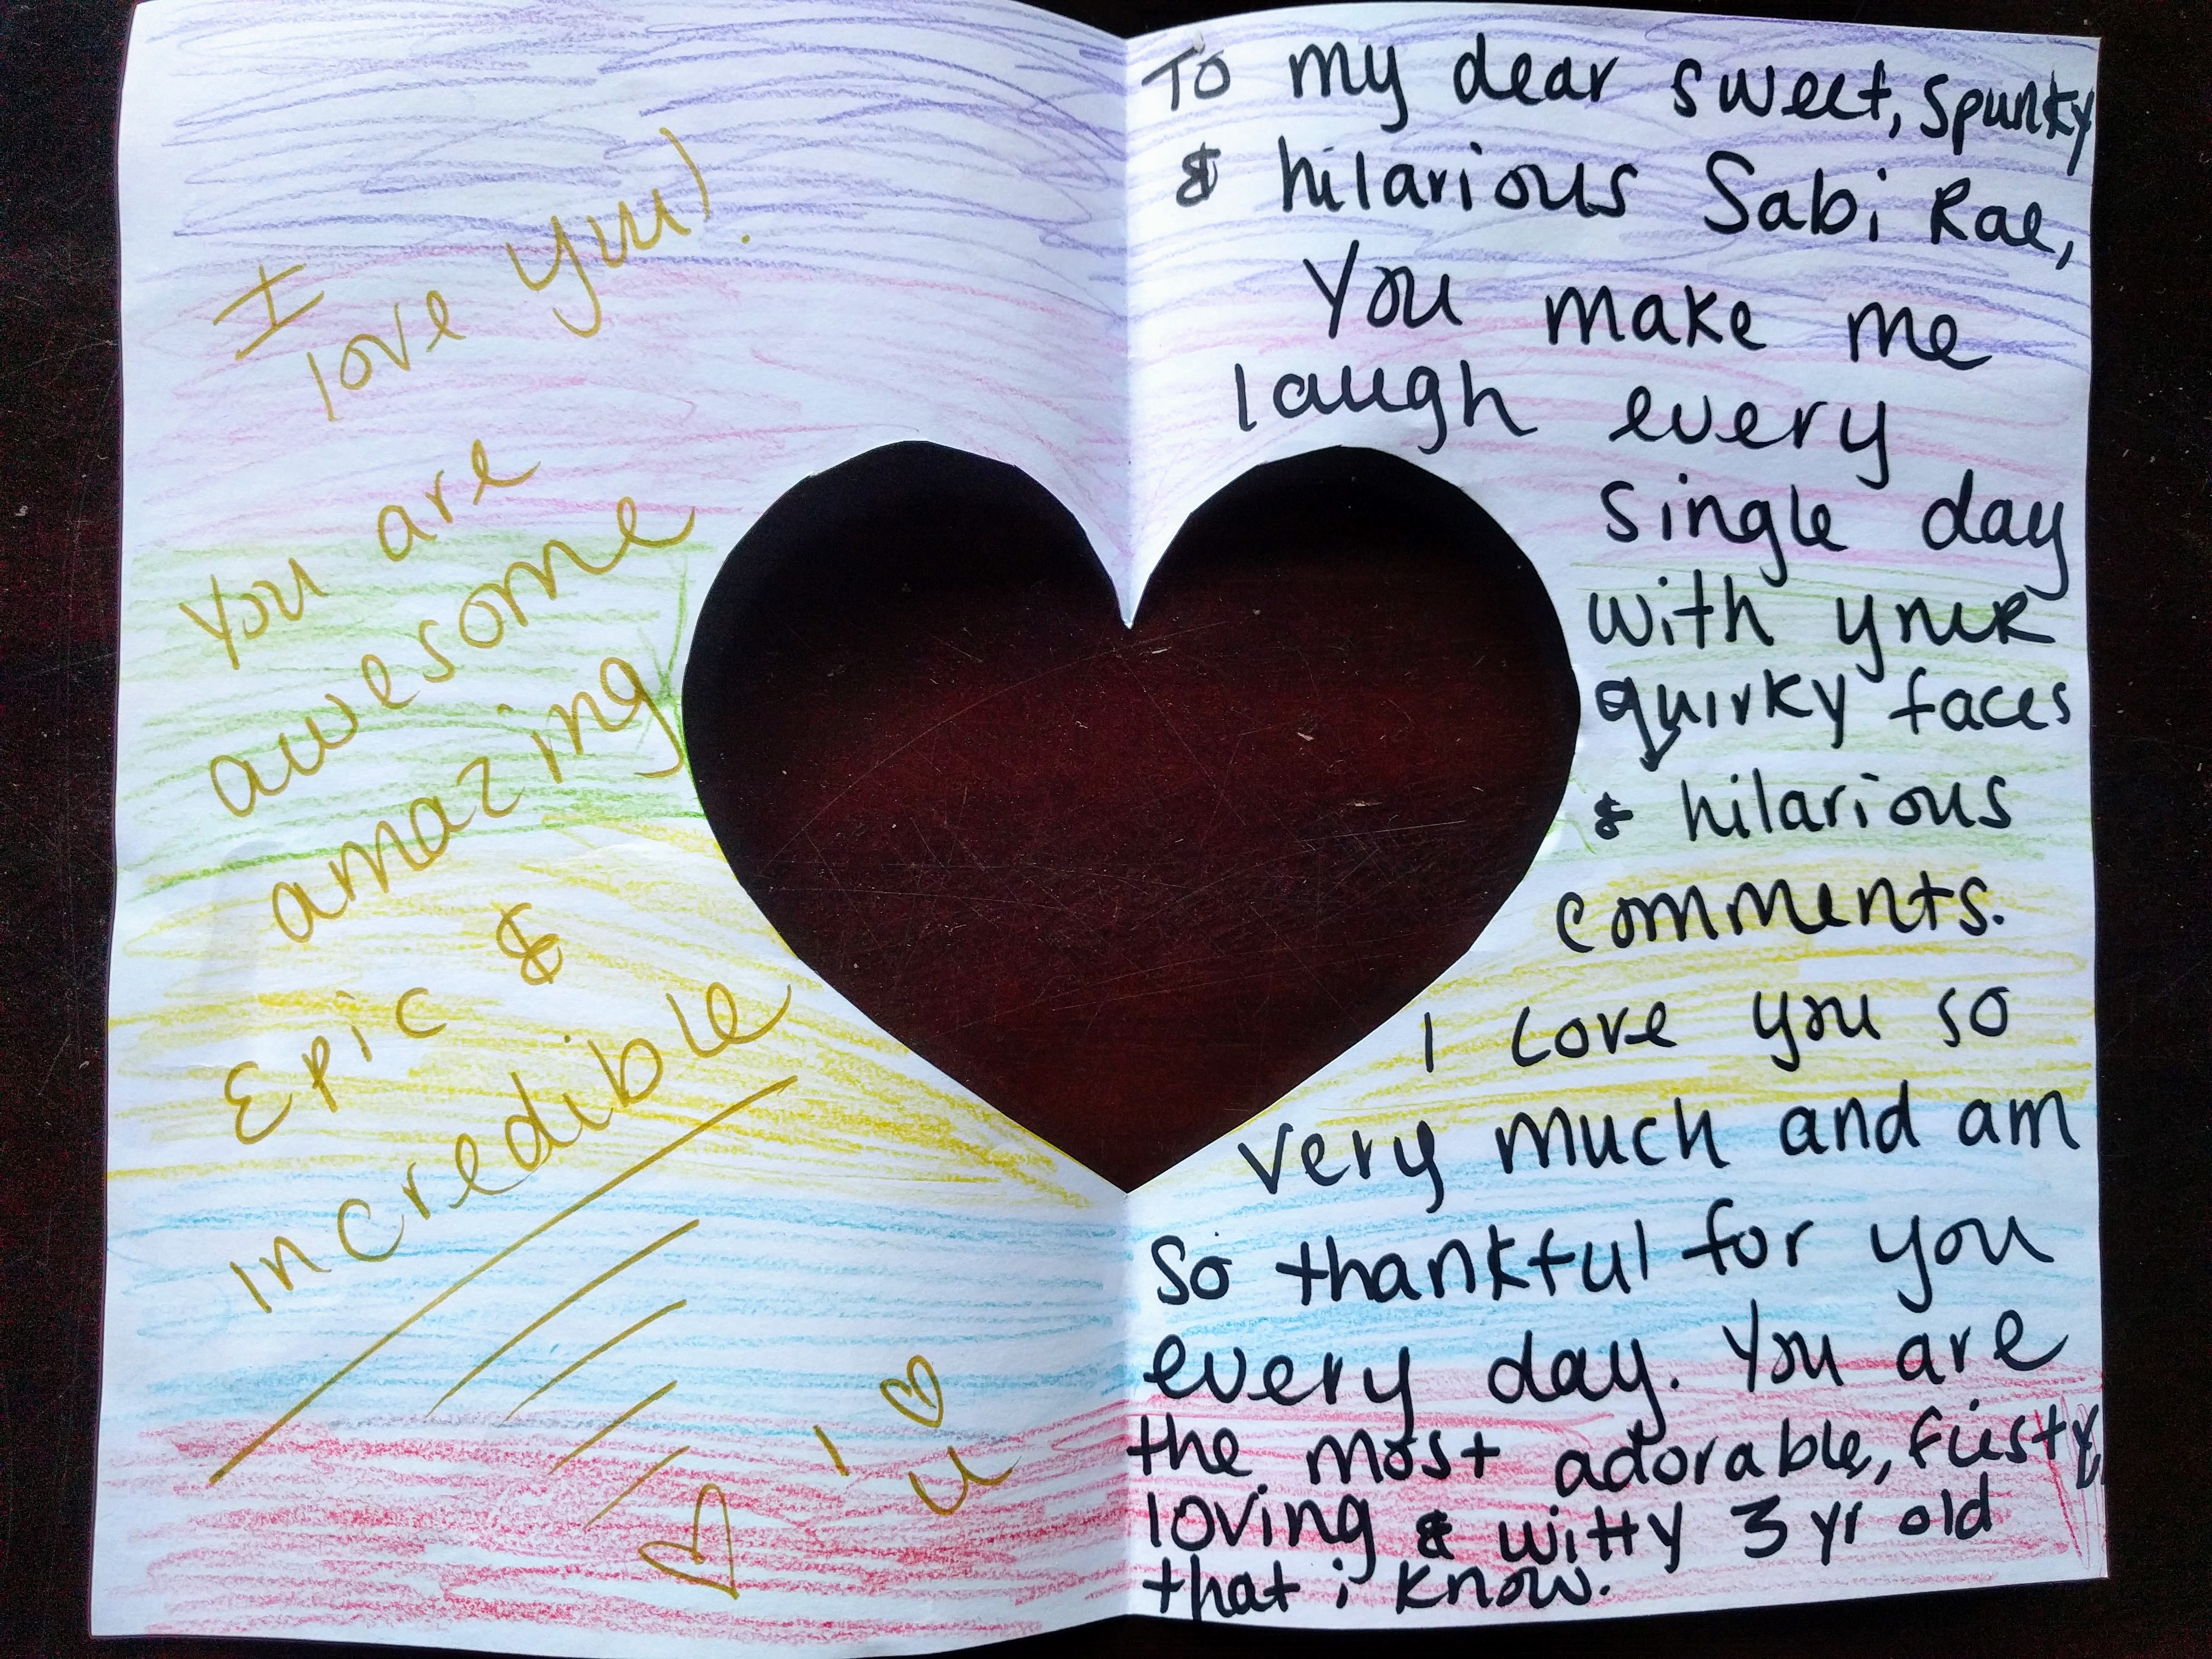 I
love you!
You are
awesome
amazing
Epic &
incredible
I ♡
u
To my dear sweet, spunky
& hilarious Sabi Rae,
You make me
laugh every
single day
with your
quirky faces
& hilarious
comments.
I love you so
very much and am
so thankful for you
every day. You are
the most adorable, fiesty,
loving & witty 3 yr old
that i know.